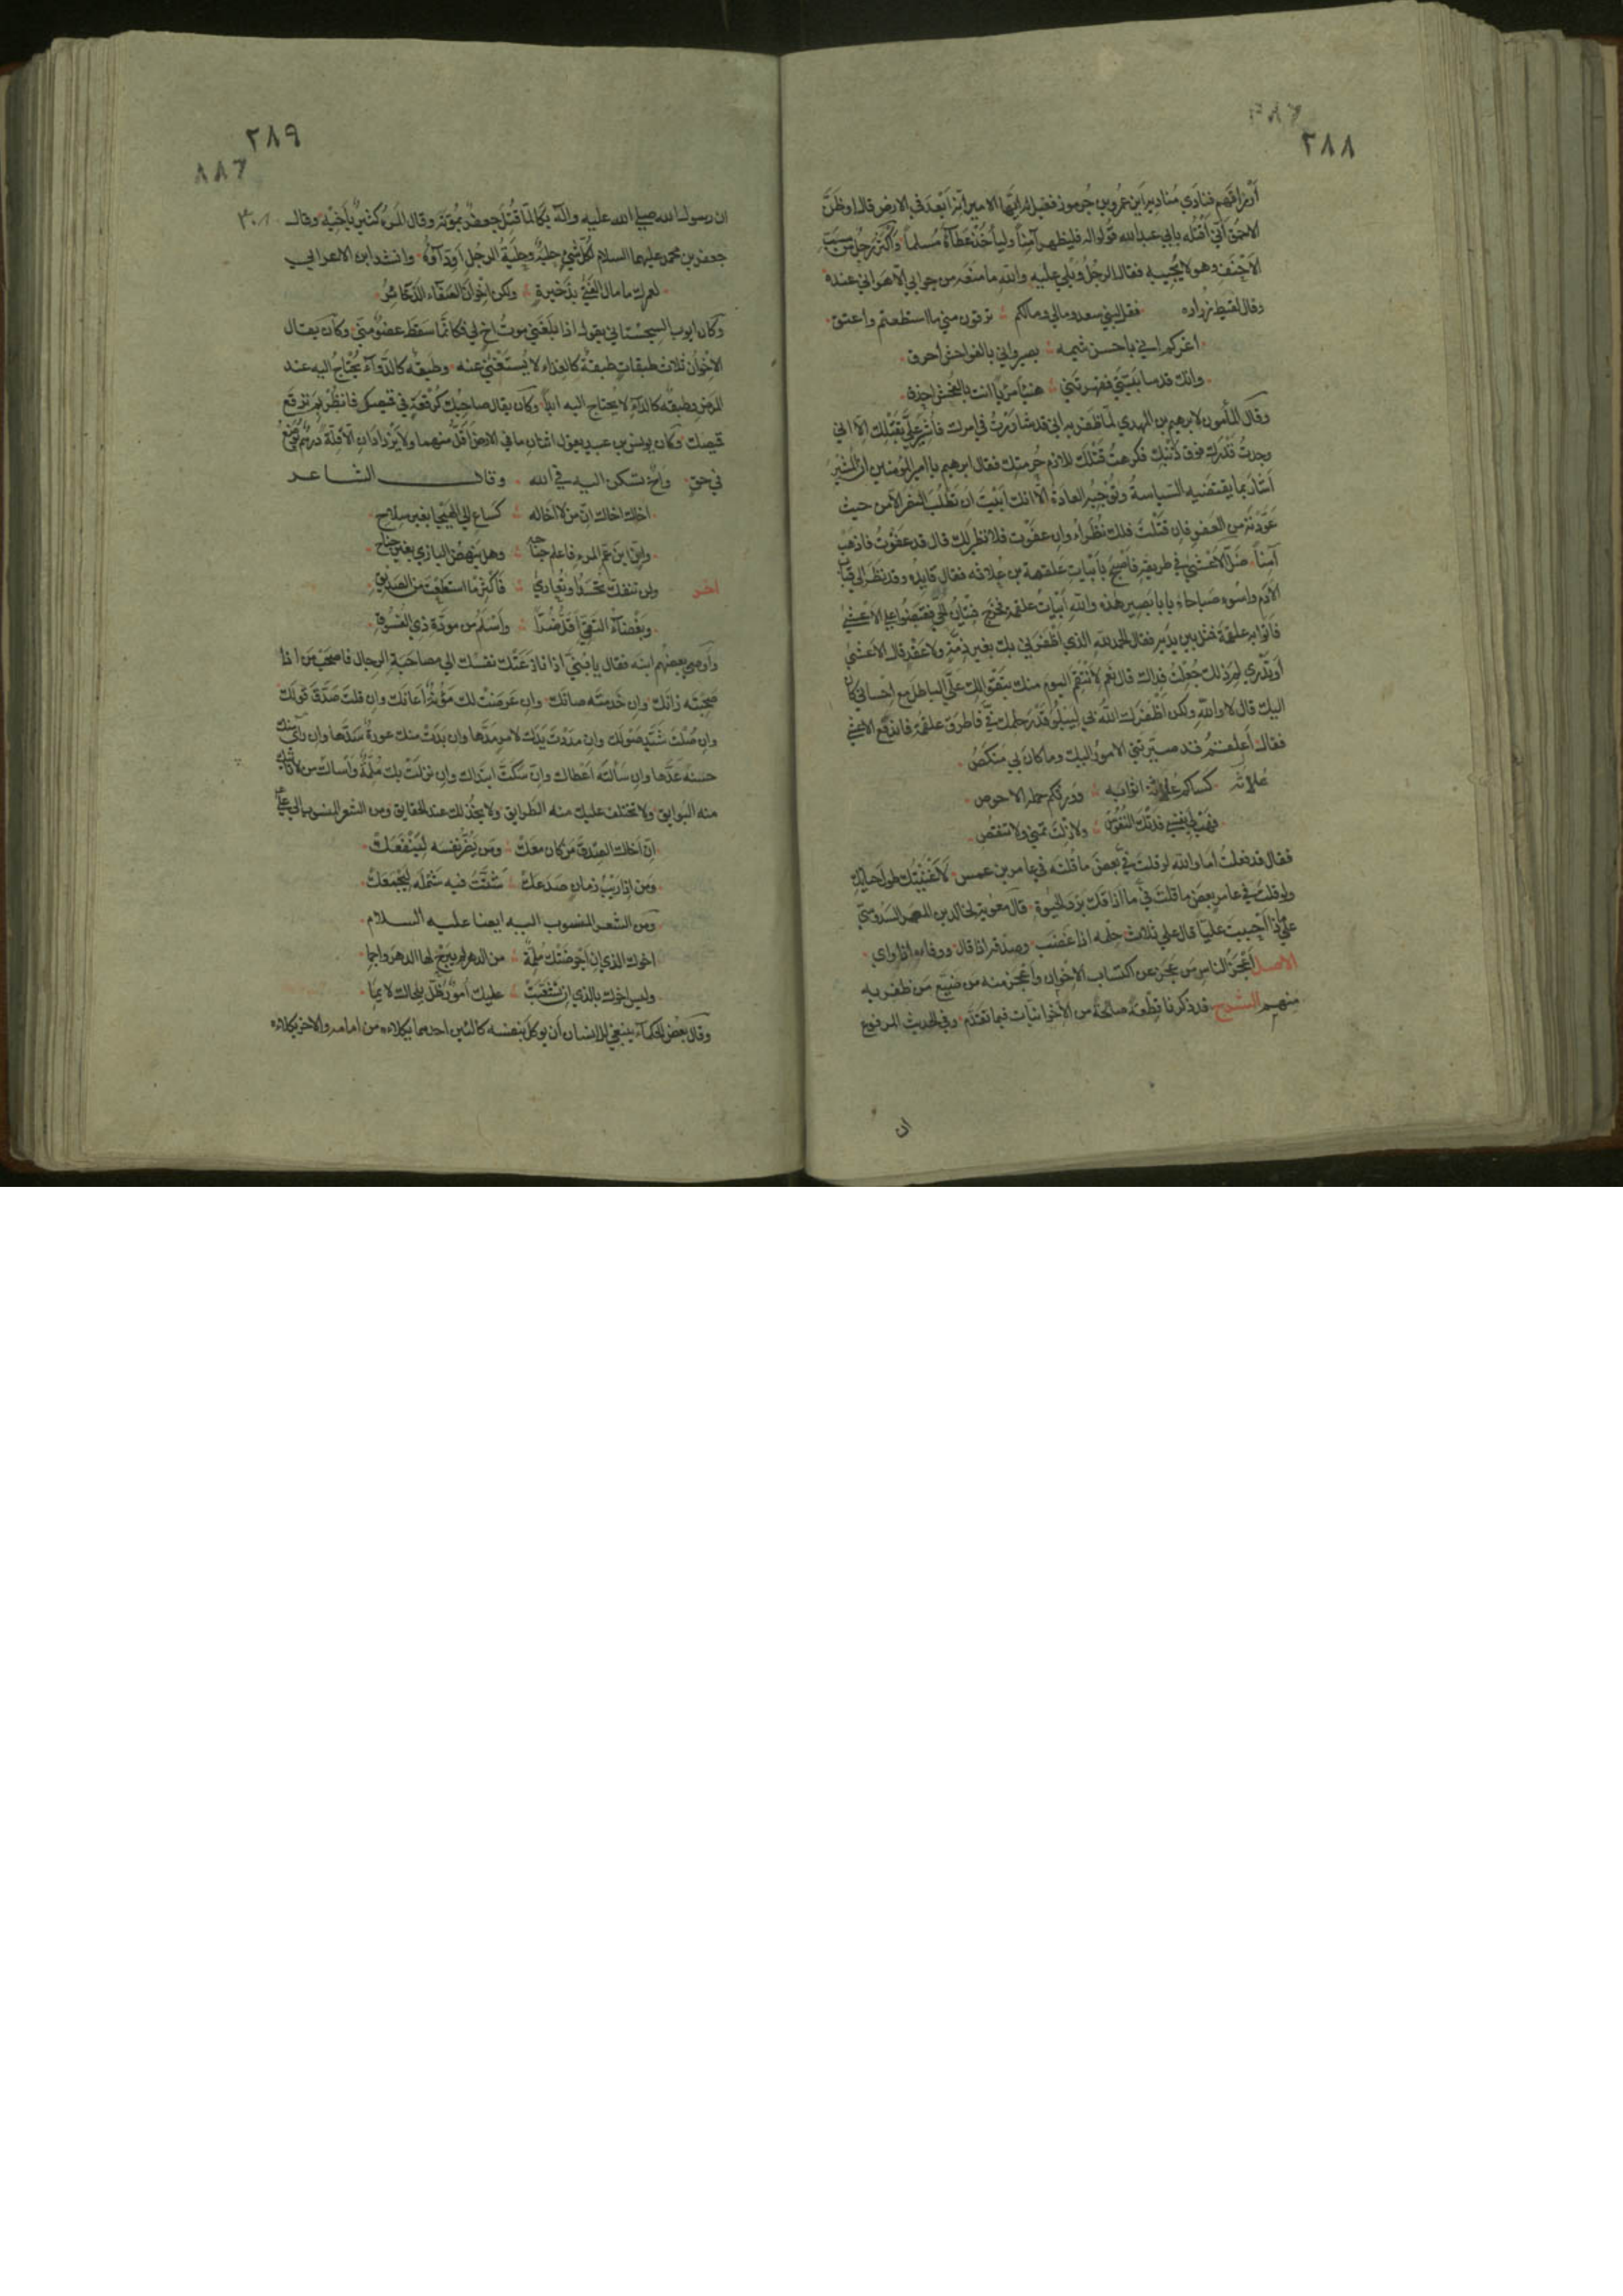 ٢٨٨
أرزاقهم فنادى مناديه أين عمرو بن جرموز فقيل له أيها الأمير انه أبعد في الارض قال اوظن
الاحمق أني أقتله بابي عبد الله قولوا له فليظهر آمنا وليأخذ عطاءه مسلما وأكثر رجل من سب
الأحنف وهو لا يجيبه فقال الرجل ويلي عليه والله ما منعه من جوابي الا هواني عنده
وقال لقيط بن زراره فقل لبني سعد ومالي ومالكم ترقون مني ما استطعتم واعتق
اغركم اني باحسن شيمه بصير واني بالفواحش أخرق
وانك قد ساببتني فقهرتني هنيئا مريا انت بالفحش احذق
وقال المأمون لابرهيم بن المهدي لما ظفر به اني قد شاورت في امرك فأشير علي بقتلك الا اني
وجدت قدرك فوق ذنبك فكرهت قتلك للازم حرمتك فقال ابرهيم يا امير المؤمنين ان المشير
أشار بما يقتضيه السياسة وتوجبه العادة الا انك أبيت ان تطلب النصر الا من حيث
عودته من العفو فان قتلت فلك نظراء وان عفوت فلا نظير لك قال قد عفوت فاذهب
آمنا ضل الأعشى في طريقه فأصبح بأبيات علقمة بن علاثه فقال قايده وقد نظر الى قباب
الأدم واسوء صباحاه يا با بصير هذه والله أبيات علقمة فخرج فتيان الحي فقبضوا على الأعشى
فاتوا به علقمة فمثل بين يديه فقال الحمد لله الذي أظفرني بك بغير ذمة ولا عقد قال الأعشى
أوتدري لم ذلك جعلت فداك قال نعم لأنتقم اليوم منك بتقوالك علي الباطل مع احساني كان
اليك قال لا والله ولكن أظفرك الله بي ليبلو قدر حلمك في فاطرق علقمة فاندفع الاعشى
فقال أعلقم قد صيرتني الامور اليك وما كان بي منكص
علاثه كساكم علاثة اثوابه وورثكم حلمه الاحوص
فهب لي نفسي فدتك النفوس ولا زلت تنمي ولا تنقص
فقال قد فعلت اما والله لو قلت في بعض ما قلته في عامر بن عمر لأغنيتك طول حياتك
ولو قلت في عامر بعض ما قلت في ما أذاقك برد الحيوة قال معوية لخالد بن المعمر السدوسي
على ماذا أحببت عليا قال على ثلاث حلمه اذا غضب وصدقه اذا قال ووفائه اذا واي
الاصل أعجز الناس من عجز عن اكتساب الاخوان وأعجز منه من ضيع من ظفر به
منهم الشرح قد ذكرنا قطعة صالحة من الأخوانيات فيما تقدم وفي الحديث المرفوع
ان
٢٨٩
ان رسول الله صلى الله عليه وآله بكا لما قتل جعفر بمؤتة وقال المرء كثير بأخيه وقال
جعفر بن محمد عليهما السلام لكل شيء حلية وحلية الرجل اوداؤه وانشد ابن الاعرابي
لعمرك ما مال الفتى بذخيرة ولكن اخوان الصفاء الذخائر
وكان ايوب السجستاني يقول اذا بلغني موت اخ لي فكانما سقط عضو مني وكان يقال
الاخوان ثلاث طبقات طبقة كالغذاء لا يستغنى عنه وطبقة كالدواء يحتاج اليه عند
المرض وطبقة كالداء لا يحتاج اليه ابدا وكان يقال صاحبك كرقعة في قميصك فانظر بم ترقع
قميصك وكان يونس بن عبيد يقول اثنان ما في الارض أقل منهما ولا يزدادان الا قلة درهم يوضع
في حق واخ تسكن اليه في الله وقال الشاعر
اخاك اخاك ان من لا اخا له كساع الى الهيجا بغير سلاح
وان ابن عم المرء فاعلم جناحه وهل ينهض البازي بغير جناح
اخر ولن تنفك تحسد او تعادي فاكثر ما استطعت من الصديق
وبغضاء التقي أقل ضرا وأسلم من مودة ذي الفسوق
وأوصى بعضهم ابنه فقال يا بني اذا نازعتك نفسك الى مصاحبة الرجال فاصحب من اذا
صحبته زانك وان خدمته صانك وان عرضت لك مؤنة أعانك وان قلت صدق قولك
وان صلت شد صولك وان مددت يدك لامر مدها وان بدت منك عورة سدها وان رأى منك
حسنة عدها وان سألته أعطاك وان سكت ابتداك وان نزلت بك ملمة واساك من لا تاتيك
منه البوايق ولا تختلف عليك منه الطرايق ولا يخذلك عند الحقايق ومن الشعر المنسوب الى علي
ان اخاك الصدق من كان معك ومن يضر نفسه لينفعك
ومن اذا ريب زمان صدعك شتت فيه شمله ليجمعك
ومن الشعر المنسوب اليه ايضا عليه السلام
اخوك الذي ان أجرضتك ملمة من الدهر لم يبرح لها الدهر واجما
وليس اخوك بالذي ان تشعبت عليك امور ظل يلحاك لايما
وقال بعض الحكماء ينبغي للانسان أن يوكل بنفسه كالئين احدهما يكلاءه من امامه والاخر يكلاءه